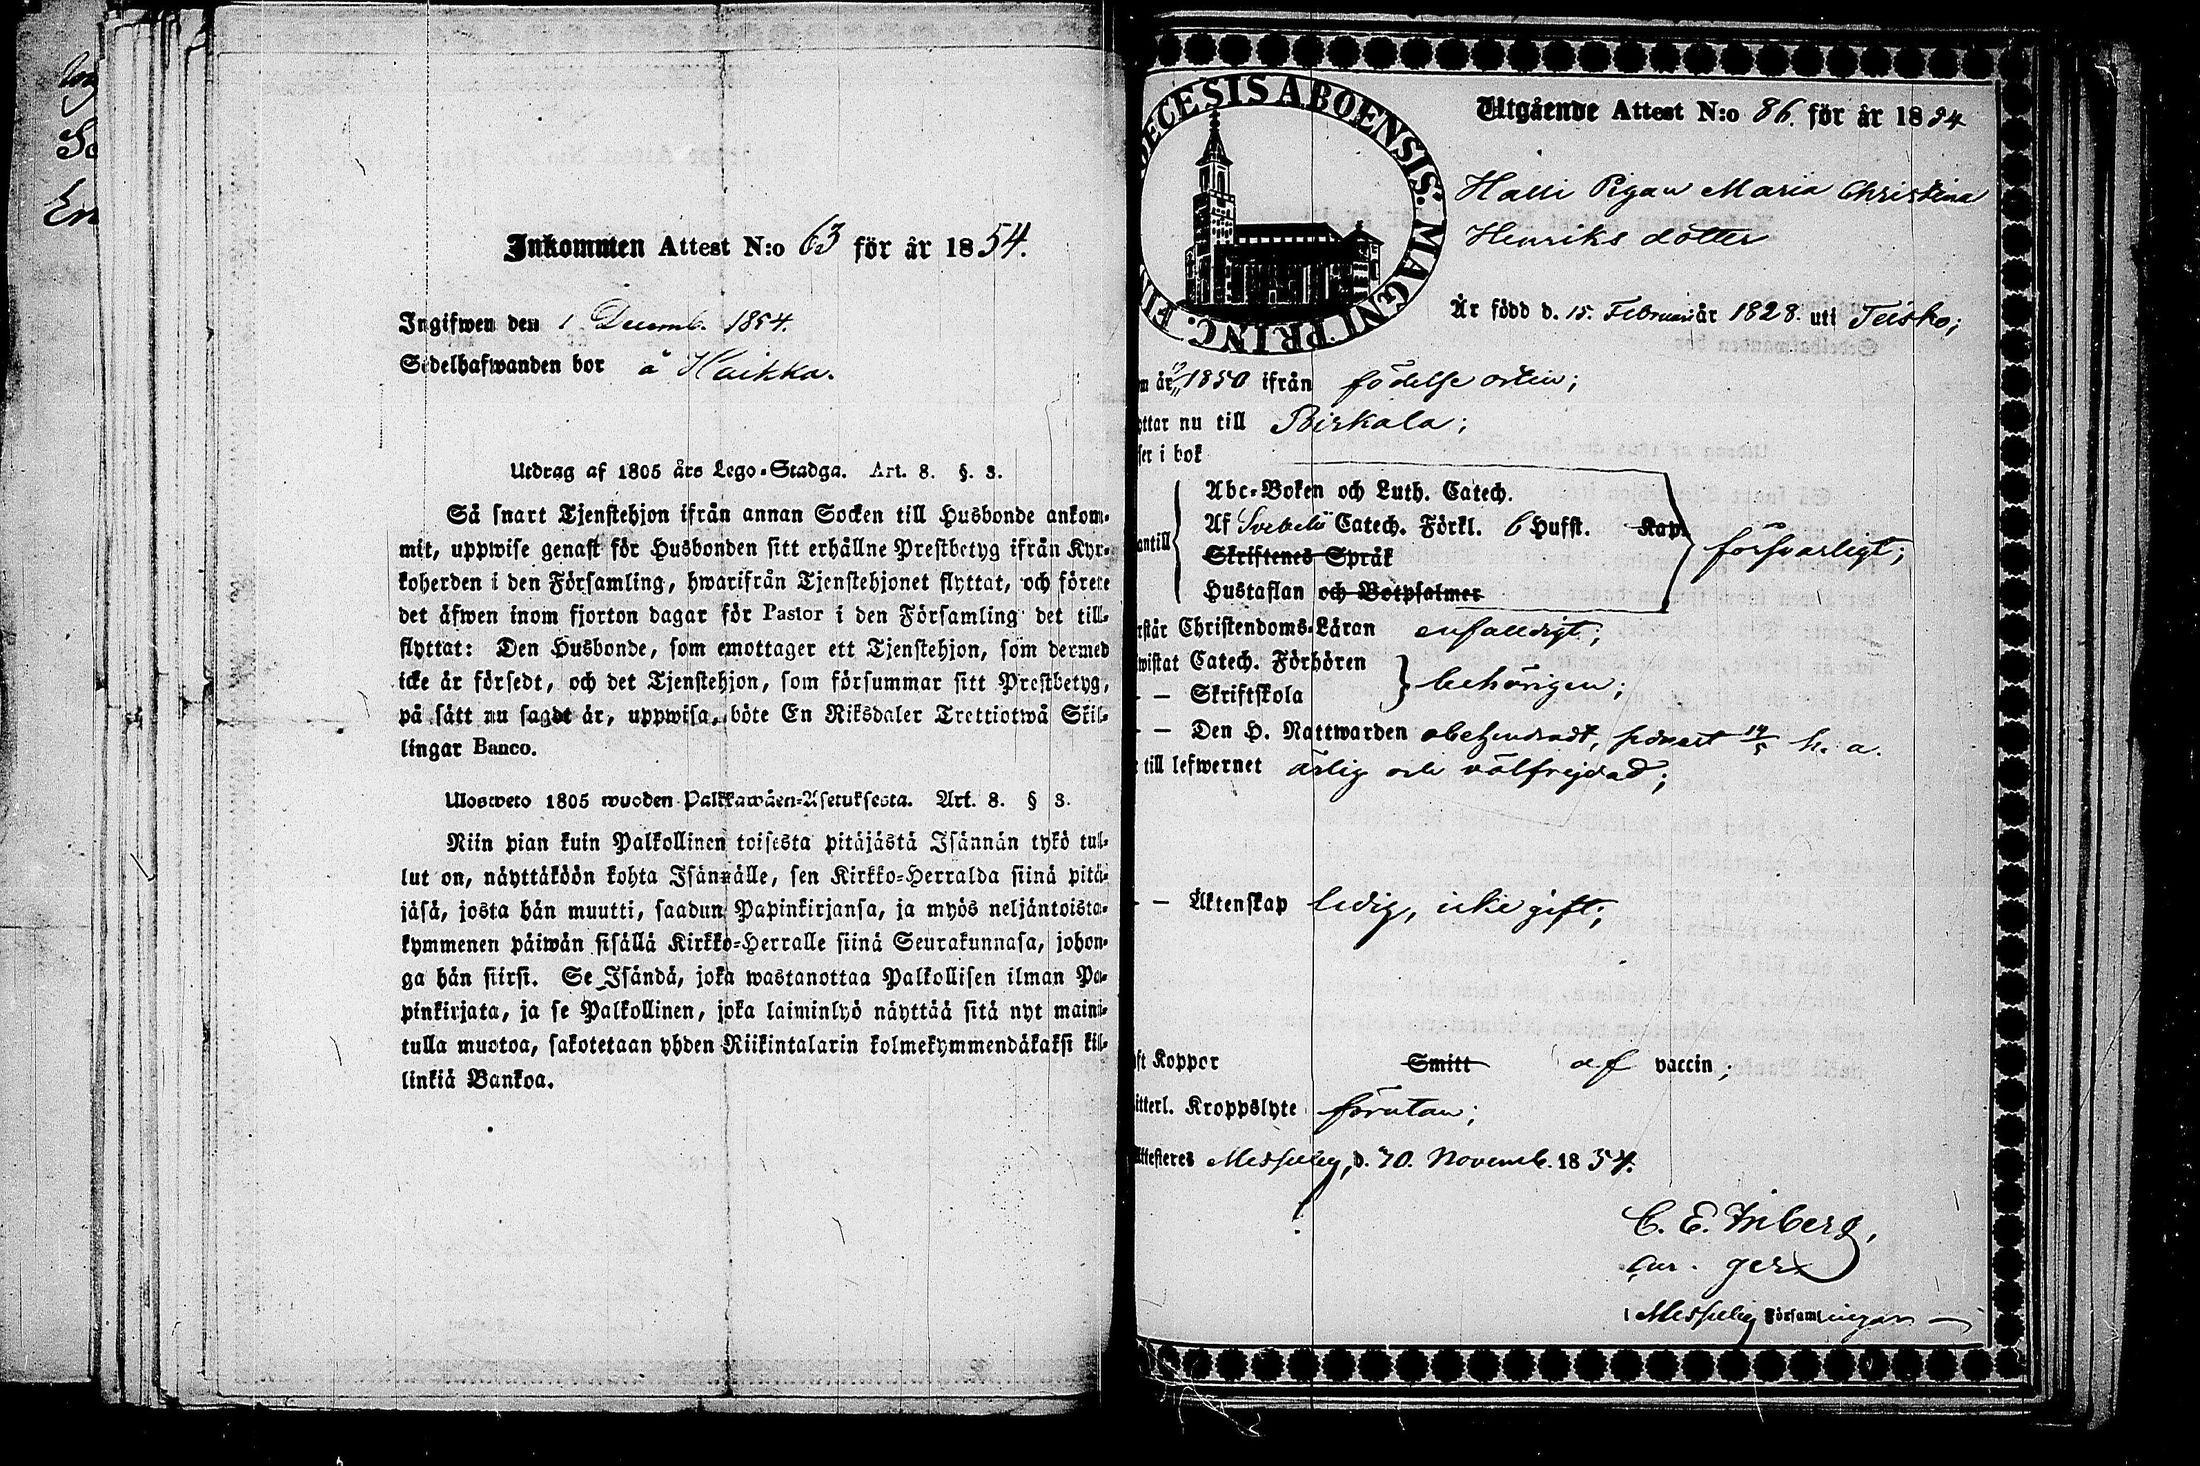 Inkommen Attest N:o 63 för år 1854.
Ingifwen den 1 Decemb. 1854.
Sedelhafwanden bor å Haikka.
Utdrag af 1805 års Lego-Stadga. Art. 8. §. 3.
Så snart Tjenstehjon ifrån annan Socken till Husbonde ankom-
mit, uppwise genast för Husbonden sitt erhållne Prestbetyg ifrån Kyr-
koherden i den Församling, hwarifrån Tjenstehjonet flyttat, och förete
det äfwen inom fjorton dagar för Pastor i den Församling det till-
flyttat: Den Husbonde, som emottager ett Tjenstehjon, som dermed
icke är försedt, och det Tjenstehjon, som försummar sitt Prestbetyg,
på sätt nu sagdt är, uppwisa, böte En Riksdaler Trettiotwå Skil-
lingar Banco.
Uloswеto 1805 wuoden Palkkawäen-Asetuksesta. Art. 8. § 3.
Niin pian kuin Palkollinen toisesta pitäjästä Isännän tykö tul-
lut on, näyttäköön kohta Isännälle, sen Kirkko-Herralda siinä pitä-
jäsä, josta hän muutti, saadun Papinkirjansa, ja myös neljäntoista-
kymmenen päiwän sisällä Kirkko-Herralle siinä Seurakunnasa, johon-
ga hän siirsi. Se Isändä, joka wastanottaa Palkollisen ilman Pa-
pinkirjata, ja se Palkollinen, joka laiminlyö näyttää sitä nyt maini-
tulla muotoa, sakotetaan yhden Riikintalarin kolmekymmendäkaksi kil-
linkiä Bankoa.
DECESIS ABOENSIS. MAGNI PRINC. FIN
Utgående Attest N:o 86. för år 1854
Halli Pigan Maria Christina
Henriks dotter
Är född d. 15. Februari år 1828. uti Teisko;
m år 1850 ifrån födelse orten;
ttar nu till Birkala;
ser i bok
Abc-Boken och Luth. Catech.
antill Af Svebelii Catech. Förkl. 6 Hufst. Kap. försvarligt;
Skriftenes Språk
Hustaflan och Botpsalmer
rstår Christendoms-Läran enfaldigt;
wistat Catech. Förhören
— — Skriftskola behörigen;
— — Den H. Nattwarden obehindradt, senast h. a.
till lefwernet ärlig och välfrejdad;
— — Äktenskap ledig, icke gift;
ft Koppor Smitt af vaccin;
itterl. Kroppslyte förutan;
Attesteres Messuby, d. 30. Novemb. 1854.
C. E. Inberg,
i Messuby Församlingar